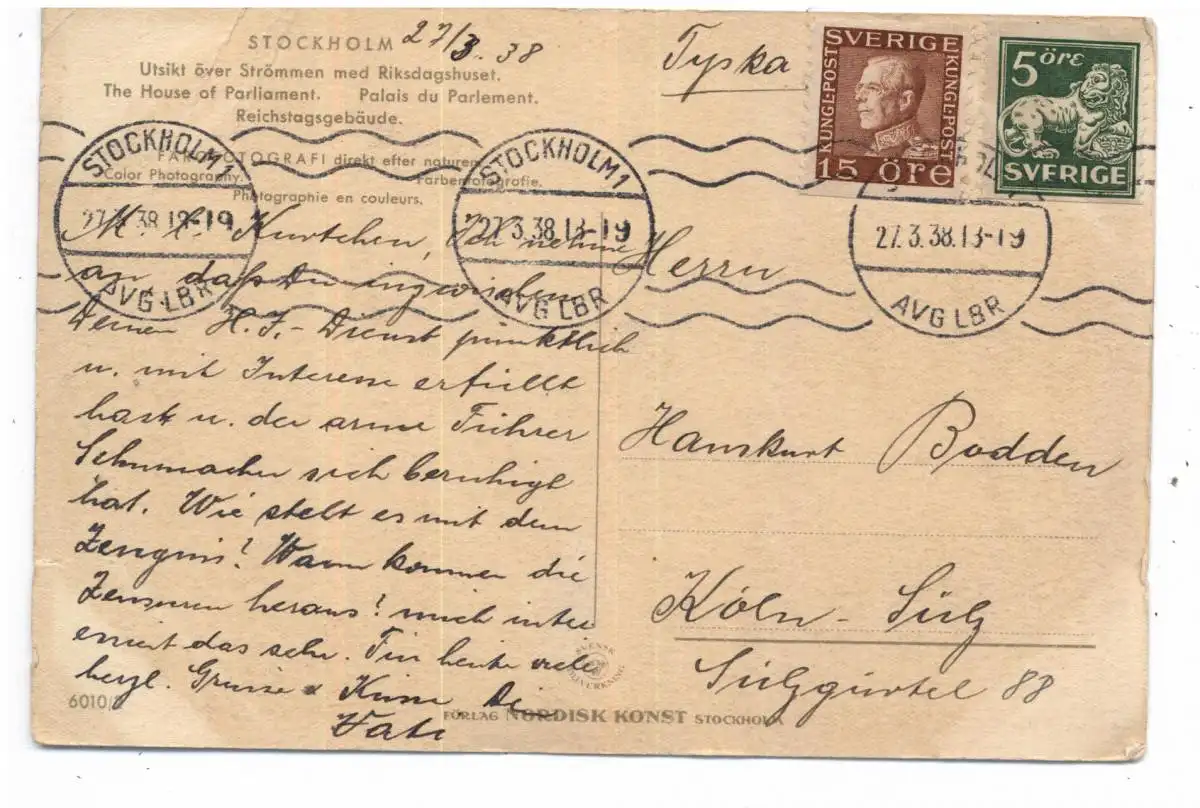 STOCKHOLM 27/3. 38
Utsikt över Strömmen med Riksdagshuset.
The House of Parliament. Palais du Parlement.
Reichstagsgebäude.
FÄRGFOTOGRAFI direkt efter naturen.
Color Photography. Farbenfotografie.
Photographie en couleurs.
Tyska
SVERIGE
KUNGL·POST
KUNGL·POST
15 ÖRE
5 öre
SVERIGE
STOCKHOLM 1
27.3.38.18-19
AVG LBR
STOCKHOLM 1
27.3.38.18-19
AVG LBR
27.3.38.18-19
AVG LBR
M. l. Kurtchen, Ich nehme
an daß Du inzwischen
Deinen H.J.- Dienst pünktlich
u. mit Interesse erfüllt
hast u. der arme Führer
Schumacher sich beruhigt
hat. Wie steht es mit dem
Zeugnis? Wann kommen die
Zensuren heraus? mich inter
essiert das sehr. Für heute viele
herzl. Grüsse & Küsse Dein
Vati
Herrn
Hanskurt Bodden
Köln-Sülz
Sülzgürtel 88
6010/
SVENSK
FÖRLAG NORDISK KONST STOCKHOLM